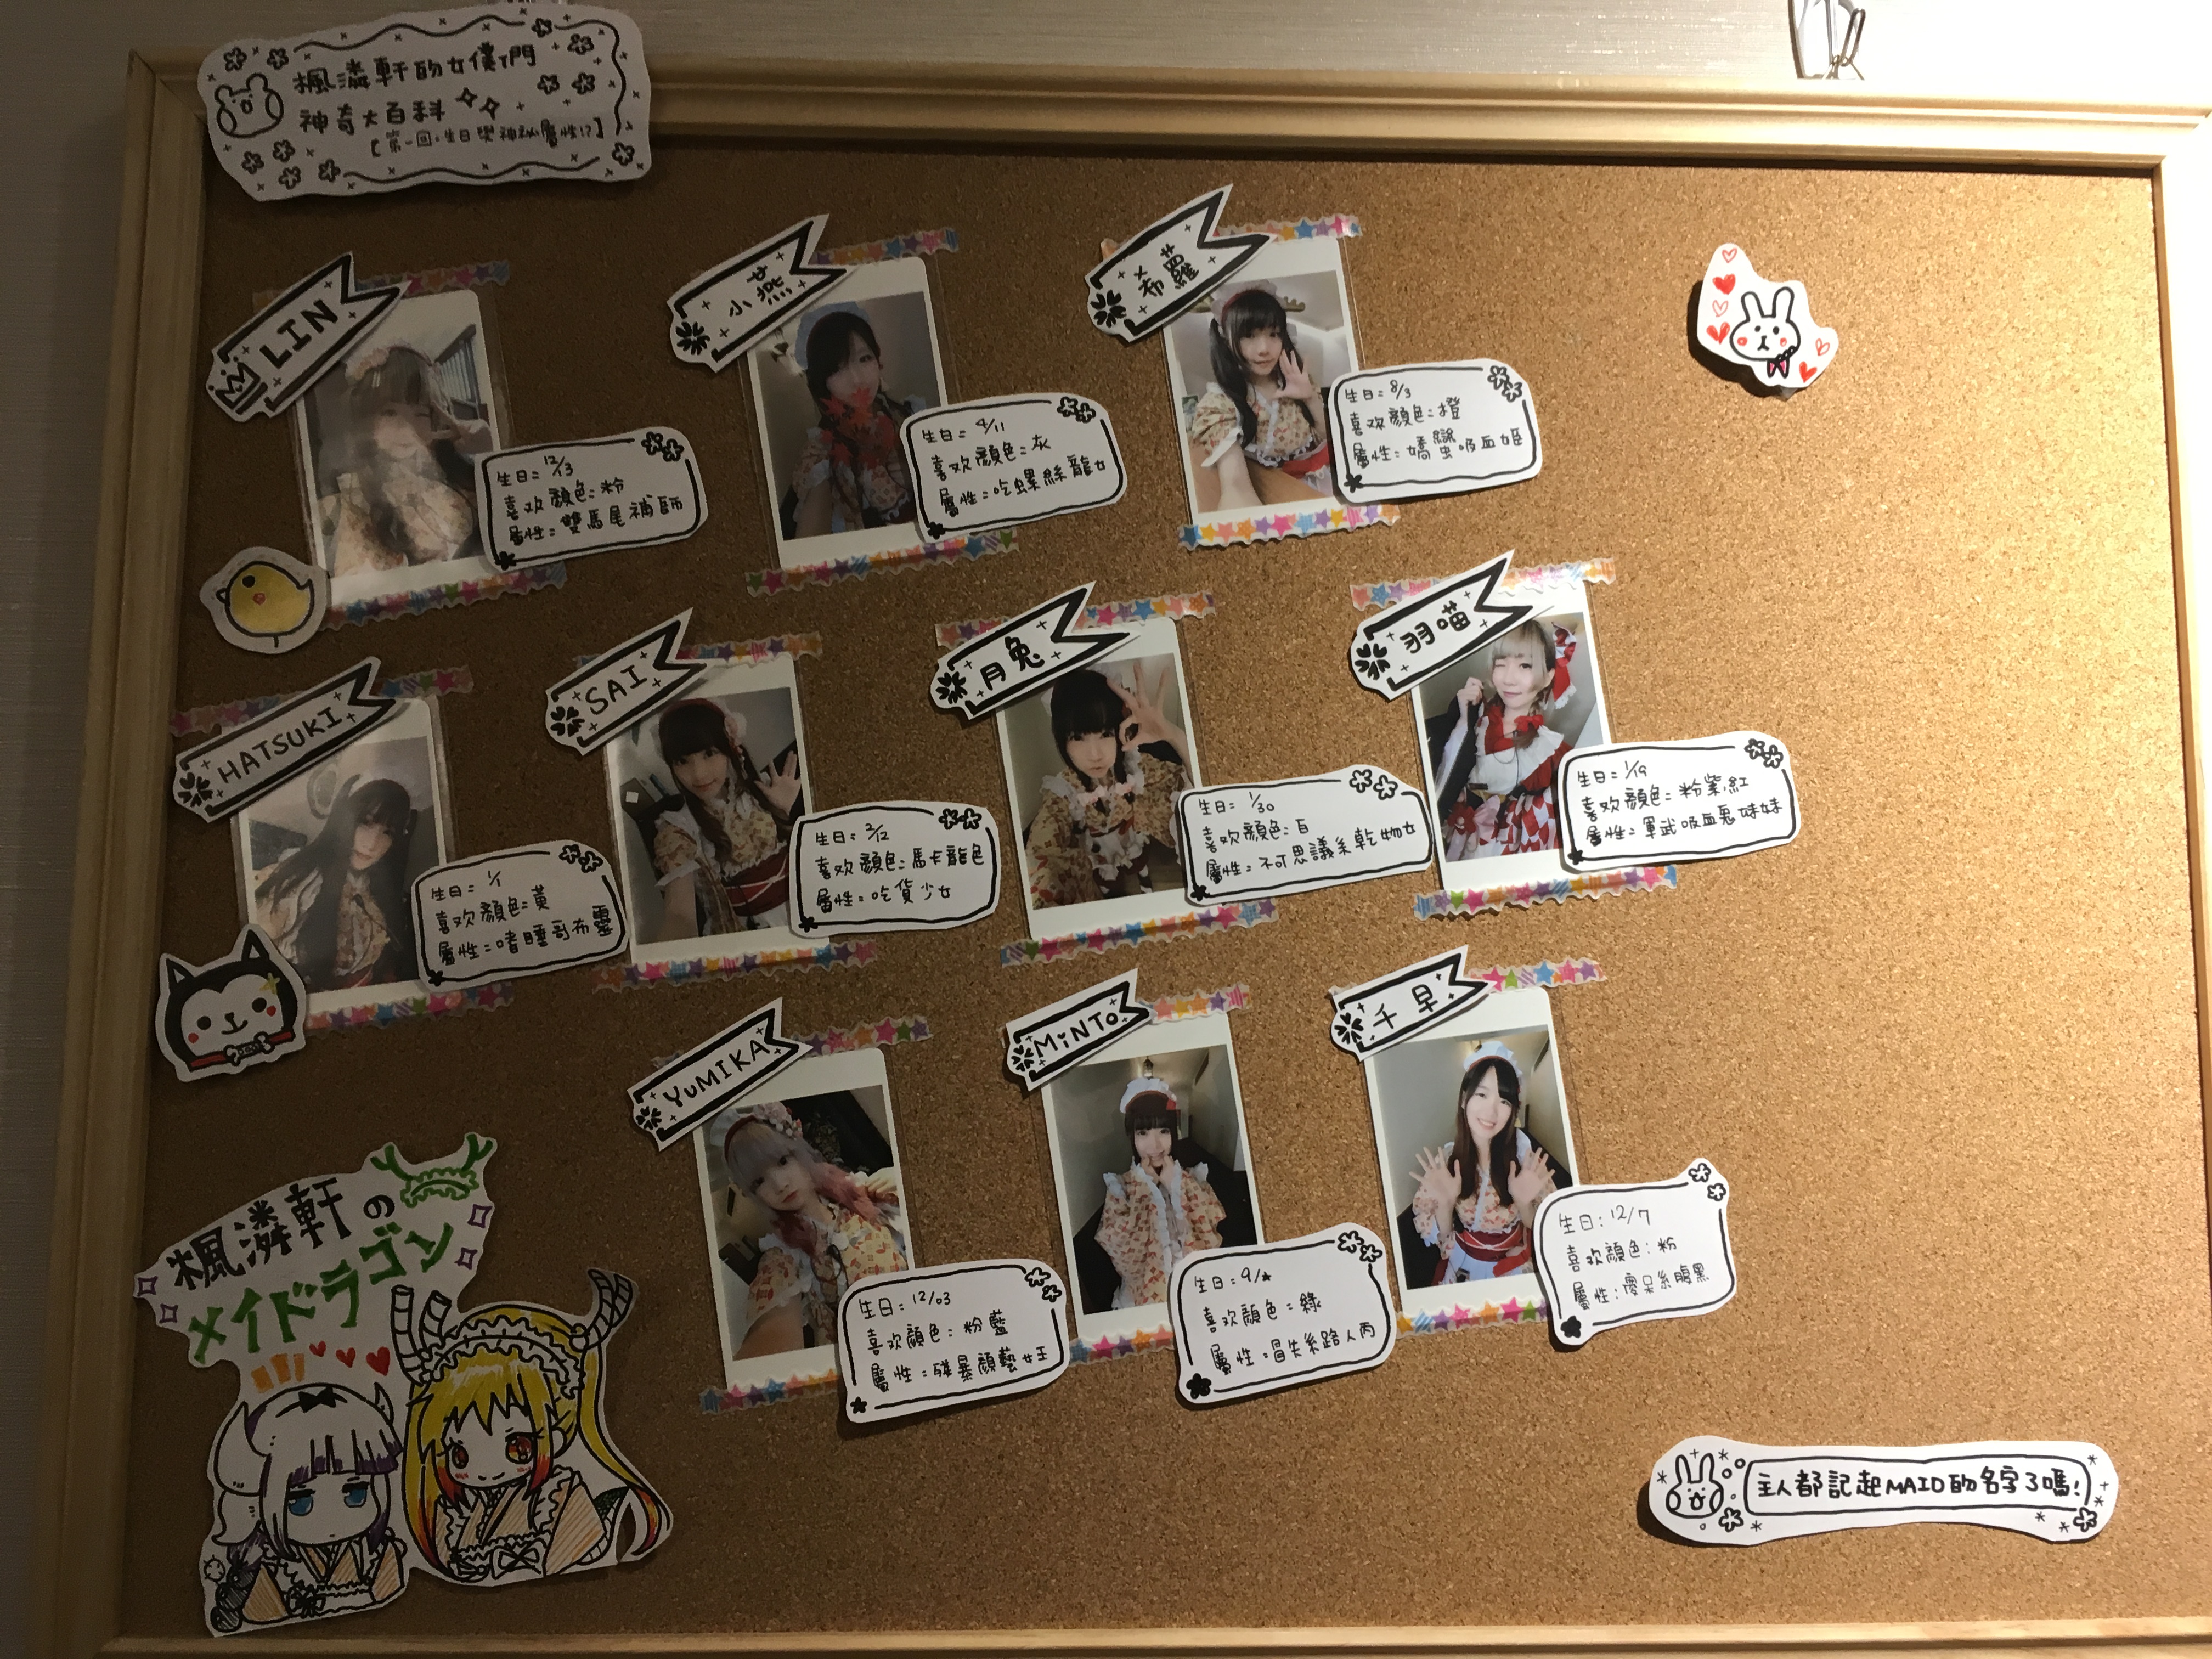 楓潾軒的女僕們
神奇大百科
【第一回:生日與神祕屬性!?】
LIN
生日:12/3
喜欢顏色:粉
屬性:雙馬尾補師
小燕
生日:4/11
喜欢顏色:灰
屬性:吃螺絲龍女
希蘿
生日:8/3
喜欢顏色:橙
屬性:嬌蠻吸血姬
HATSUKI
生日:1/1
喜欢顏色:黃
屬性:嗜睡哥布靈
SAI
生日:2/12
喜欢顏色:馬卡龍色
屬性:吃貨少女
月兔
生日:1/30
喜欢顏色:白
屬性:不可思議系乾物女
羽喵
生日:1/19
喜欢顏色:粉紫,紅
屬性:軍武吸血鬼妹妹
YUMIKA
生日:12/03
喜欢顏色:粉藍
屬性:殘暴顏藝女王
MiNTo
生日:9/★
喜欢顏色:綠
屬性:冒失系路人丙
千早
生日:12/7
喜欢顏色:粉
屬性:呆系腹黑
楓潾軒の
メイドラゴン
主人都記起MAID的名字了嗎!